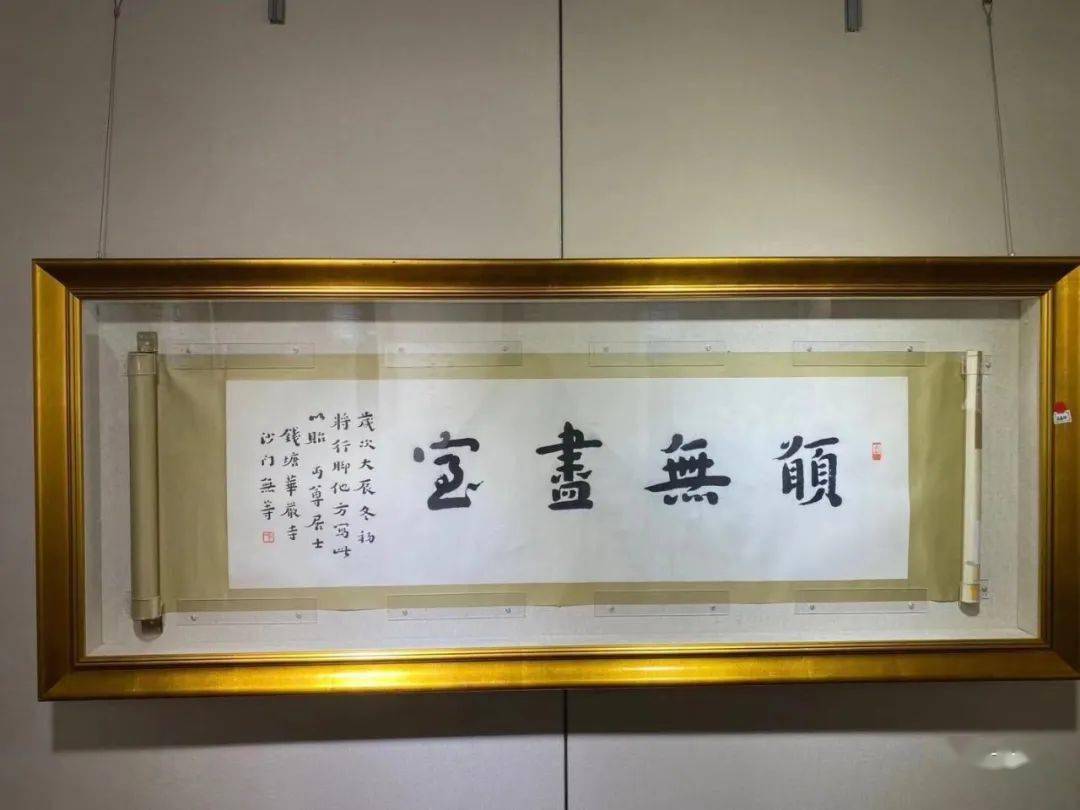 願無盡室
歲次大辰冬初
將行腳他方寫此
以貽 丏尊居士
錢塘華嚴寺
沙門無等